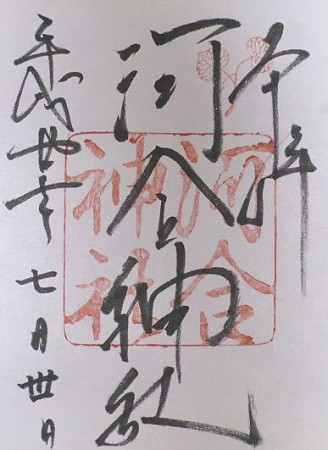 奉拝
河合神社
平成廿年七月丗日
河合
神社